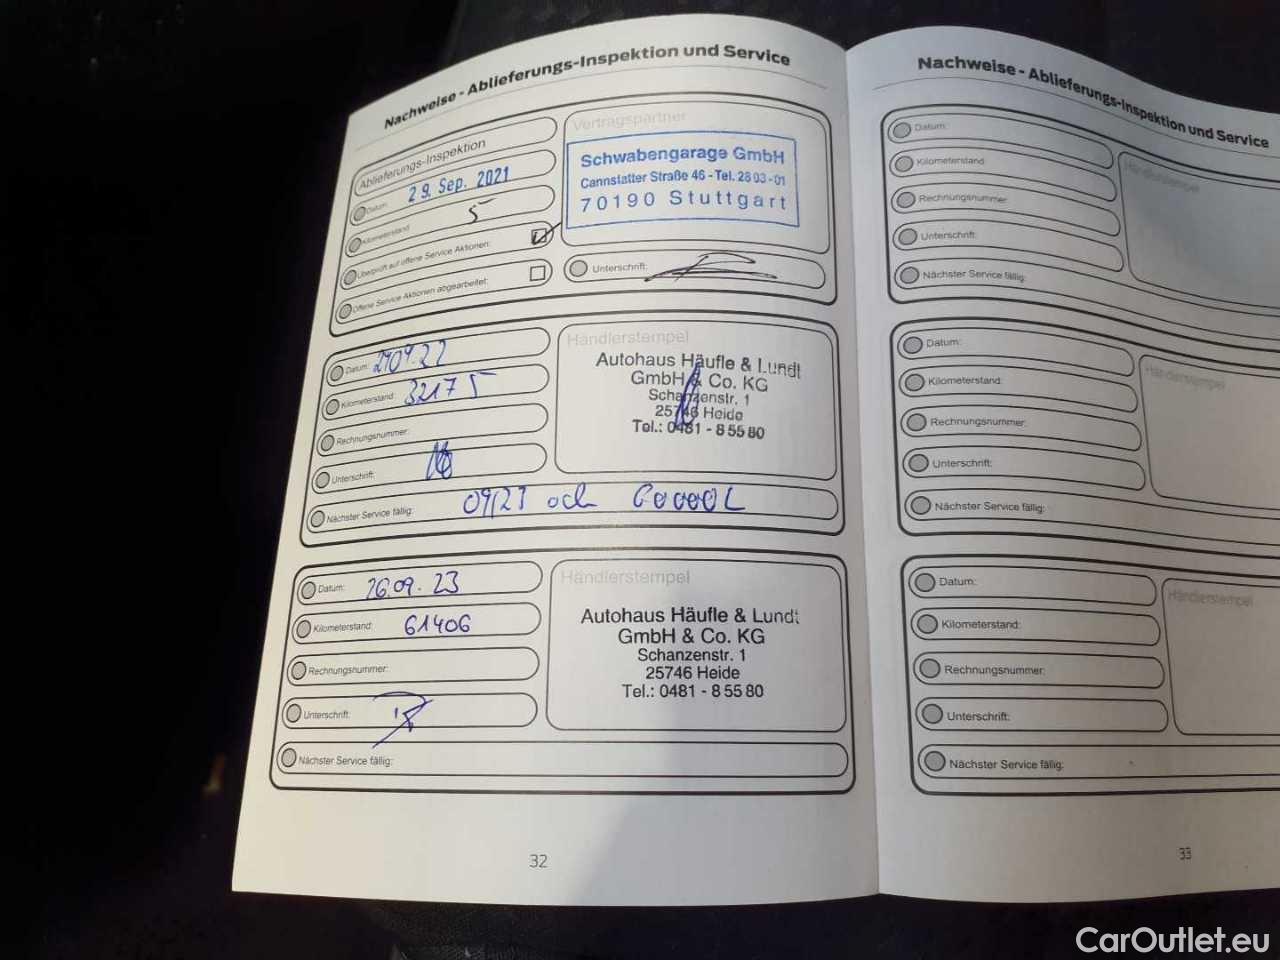 Nachweise - Ablieferungs-Inspektion und Service
Ablieferungs-Inspektion
Datum: 29. Sep. 2021
Kilometerstand: 5
Überprüft auf offene Service Aktionen:
Offene Service Aktionen abgearbeitet:
Vertragspartner
Schwabengarage GmbH
Cannstatter Straße 46 - Tel. 28 03 - 01
70190 Stuttgart
Unterschrift:
Datum:
Kilometerstand: 32175
Rechnungsnummer:
Unterschrift:
Nächster Service fällig: 09/23
Händlerstempel
Autohaus Häufle & Lundt
GmbH & Co. KG
Schanzenstr. 1
25746 Heide
Tel.: 0481 - 8 55 80
Datum: 26.09.23
Kilometerstand: 61406
Rechnungsnummer:
Unterschrift:
Nächster Service fällig:
Händlerstempel
Autohaus Häufle & Lundt
GmbH & Co. KG
Schanzenstr. 1
25746 Heide
Tel.: 0481 - 8 55 80
32
Nachweise - Ablieferungs-Inspektion und Service
Datum:
Kilometerstand:
Rechnungsnummer:
Unterschrift:
Nächster Service fällig:
Händlerstempel
Datum:
Kilometerstand:
Rechnungsnummer:
Unterschrift:
Nächster Service fällig:
Händlerstempel
Datum:
Kilometerstand:
Rechnungsnummer:
Unterschrift:
Nächster Service fällig:
Händlerstempel
33
CarOutlet.eu